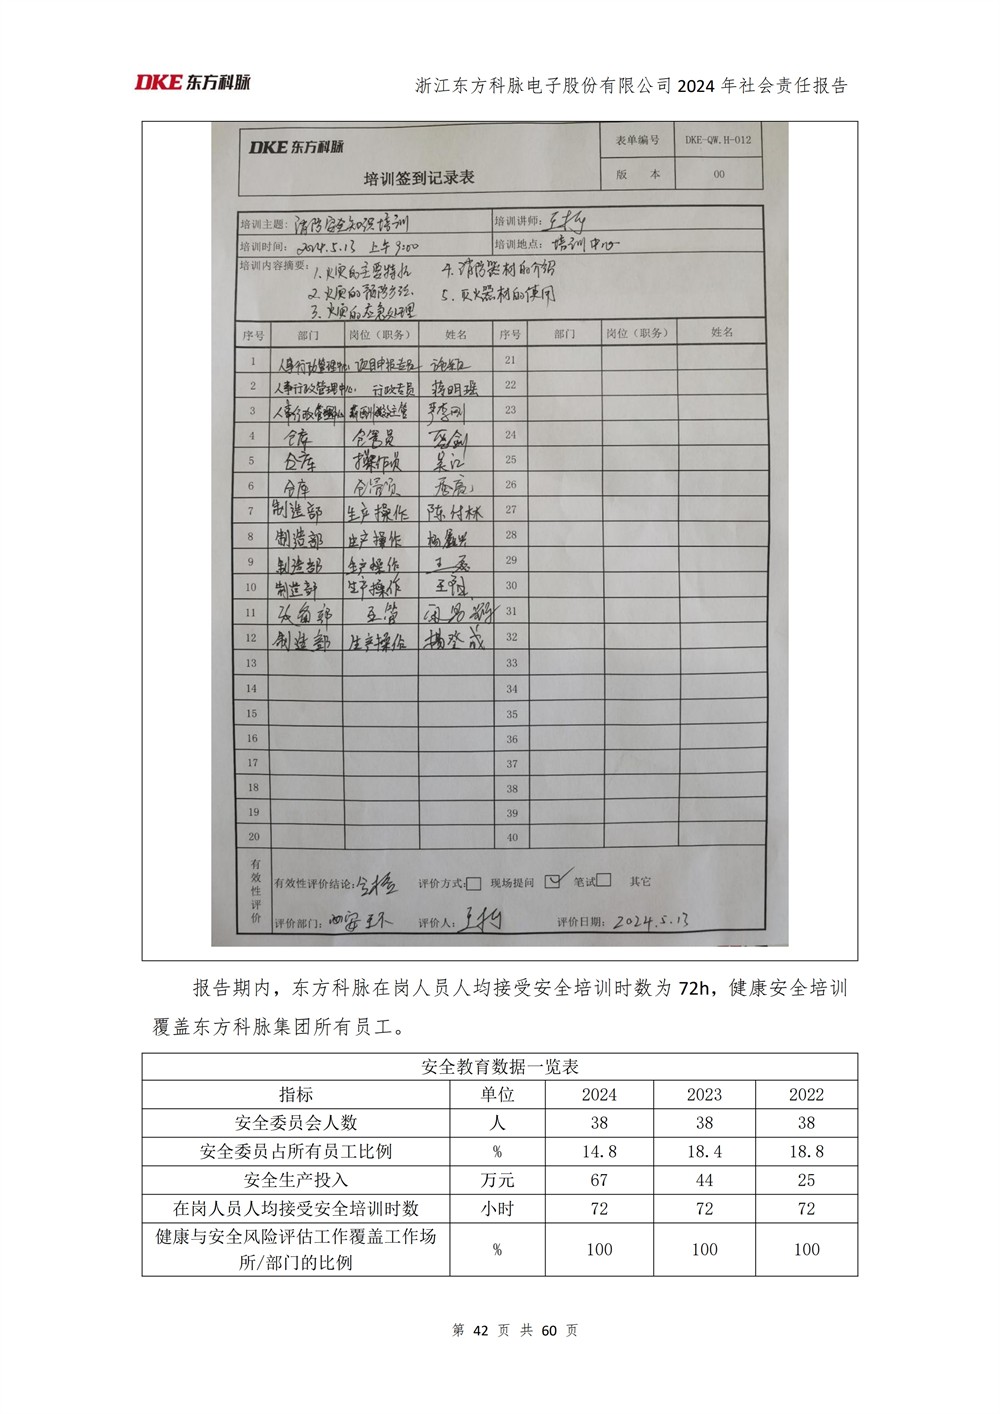 DKE 东方科脉
浙江东方科脉电子股份有限公司 2024 年社会责任报告
DKE 东方科脉
培训签到记录表
表单编号 DKE-QW.H-012
版 本 00
培训主题: 消防安全知识培训 培训讲师: 王
培训时间: 2024.5.13 上午 9:00 培训地点: 培训中心
培训内容摘要: 1.火灾的主要特征 4.消防器材的介绍
2.火灾的预防方法. 5.灭火器材的使用
3.火灾的应急处理
序号 部门 岗位(职务) 姓名 序号 部门 岗位(职务) 姓名
1 人事行政管理中心 项目申报专员 21
2 人事行政管理中心. 行政专员 蒋明瑶 22
3 人事行政管理中心 主管 23
4 仓库 仓管员 24
5 仓库 操作员 吴江 25
6 仓库 仓管员 26
7 制造部 生产操作 陈付林 27
8 制造部 生产操作 杨 28
9 制造部 生产操作 王 29
10 制造部 生产操作 王 30
11 设备部 主管 31
12 制造部 生产操作 杨登成 32
13 33
14 34
15 35
16 36
17 37
18 38
19 39
20 40
有效性评价
有效性评价结论: 合格 评价方式: 现场提问 笔试 其它
评价部门: 西安 评价人: 王 评价日期: 2024.5.13
报告期内，东方科脉在岗人员人均接受安全培训时数为 72h，健康安全培训
覆盖东方科脉集团所有员工。
安全教育数据一览表
指标 单位 2024 2023 2022
安全委员会人数 人 38 38 38
安全委员占所有员工比例 % 14.8 18.4 18.8
安全生产投入 万元 67 44 25
在岗人员人均接受安全培训时数 小时 72 72 72
健康与安全风险评估工作覆盖工作场
所/部门的比例 % 100 100 100
第 42 页 共 60 页